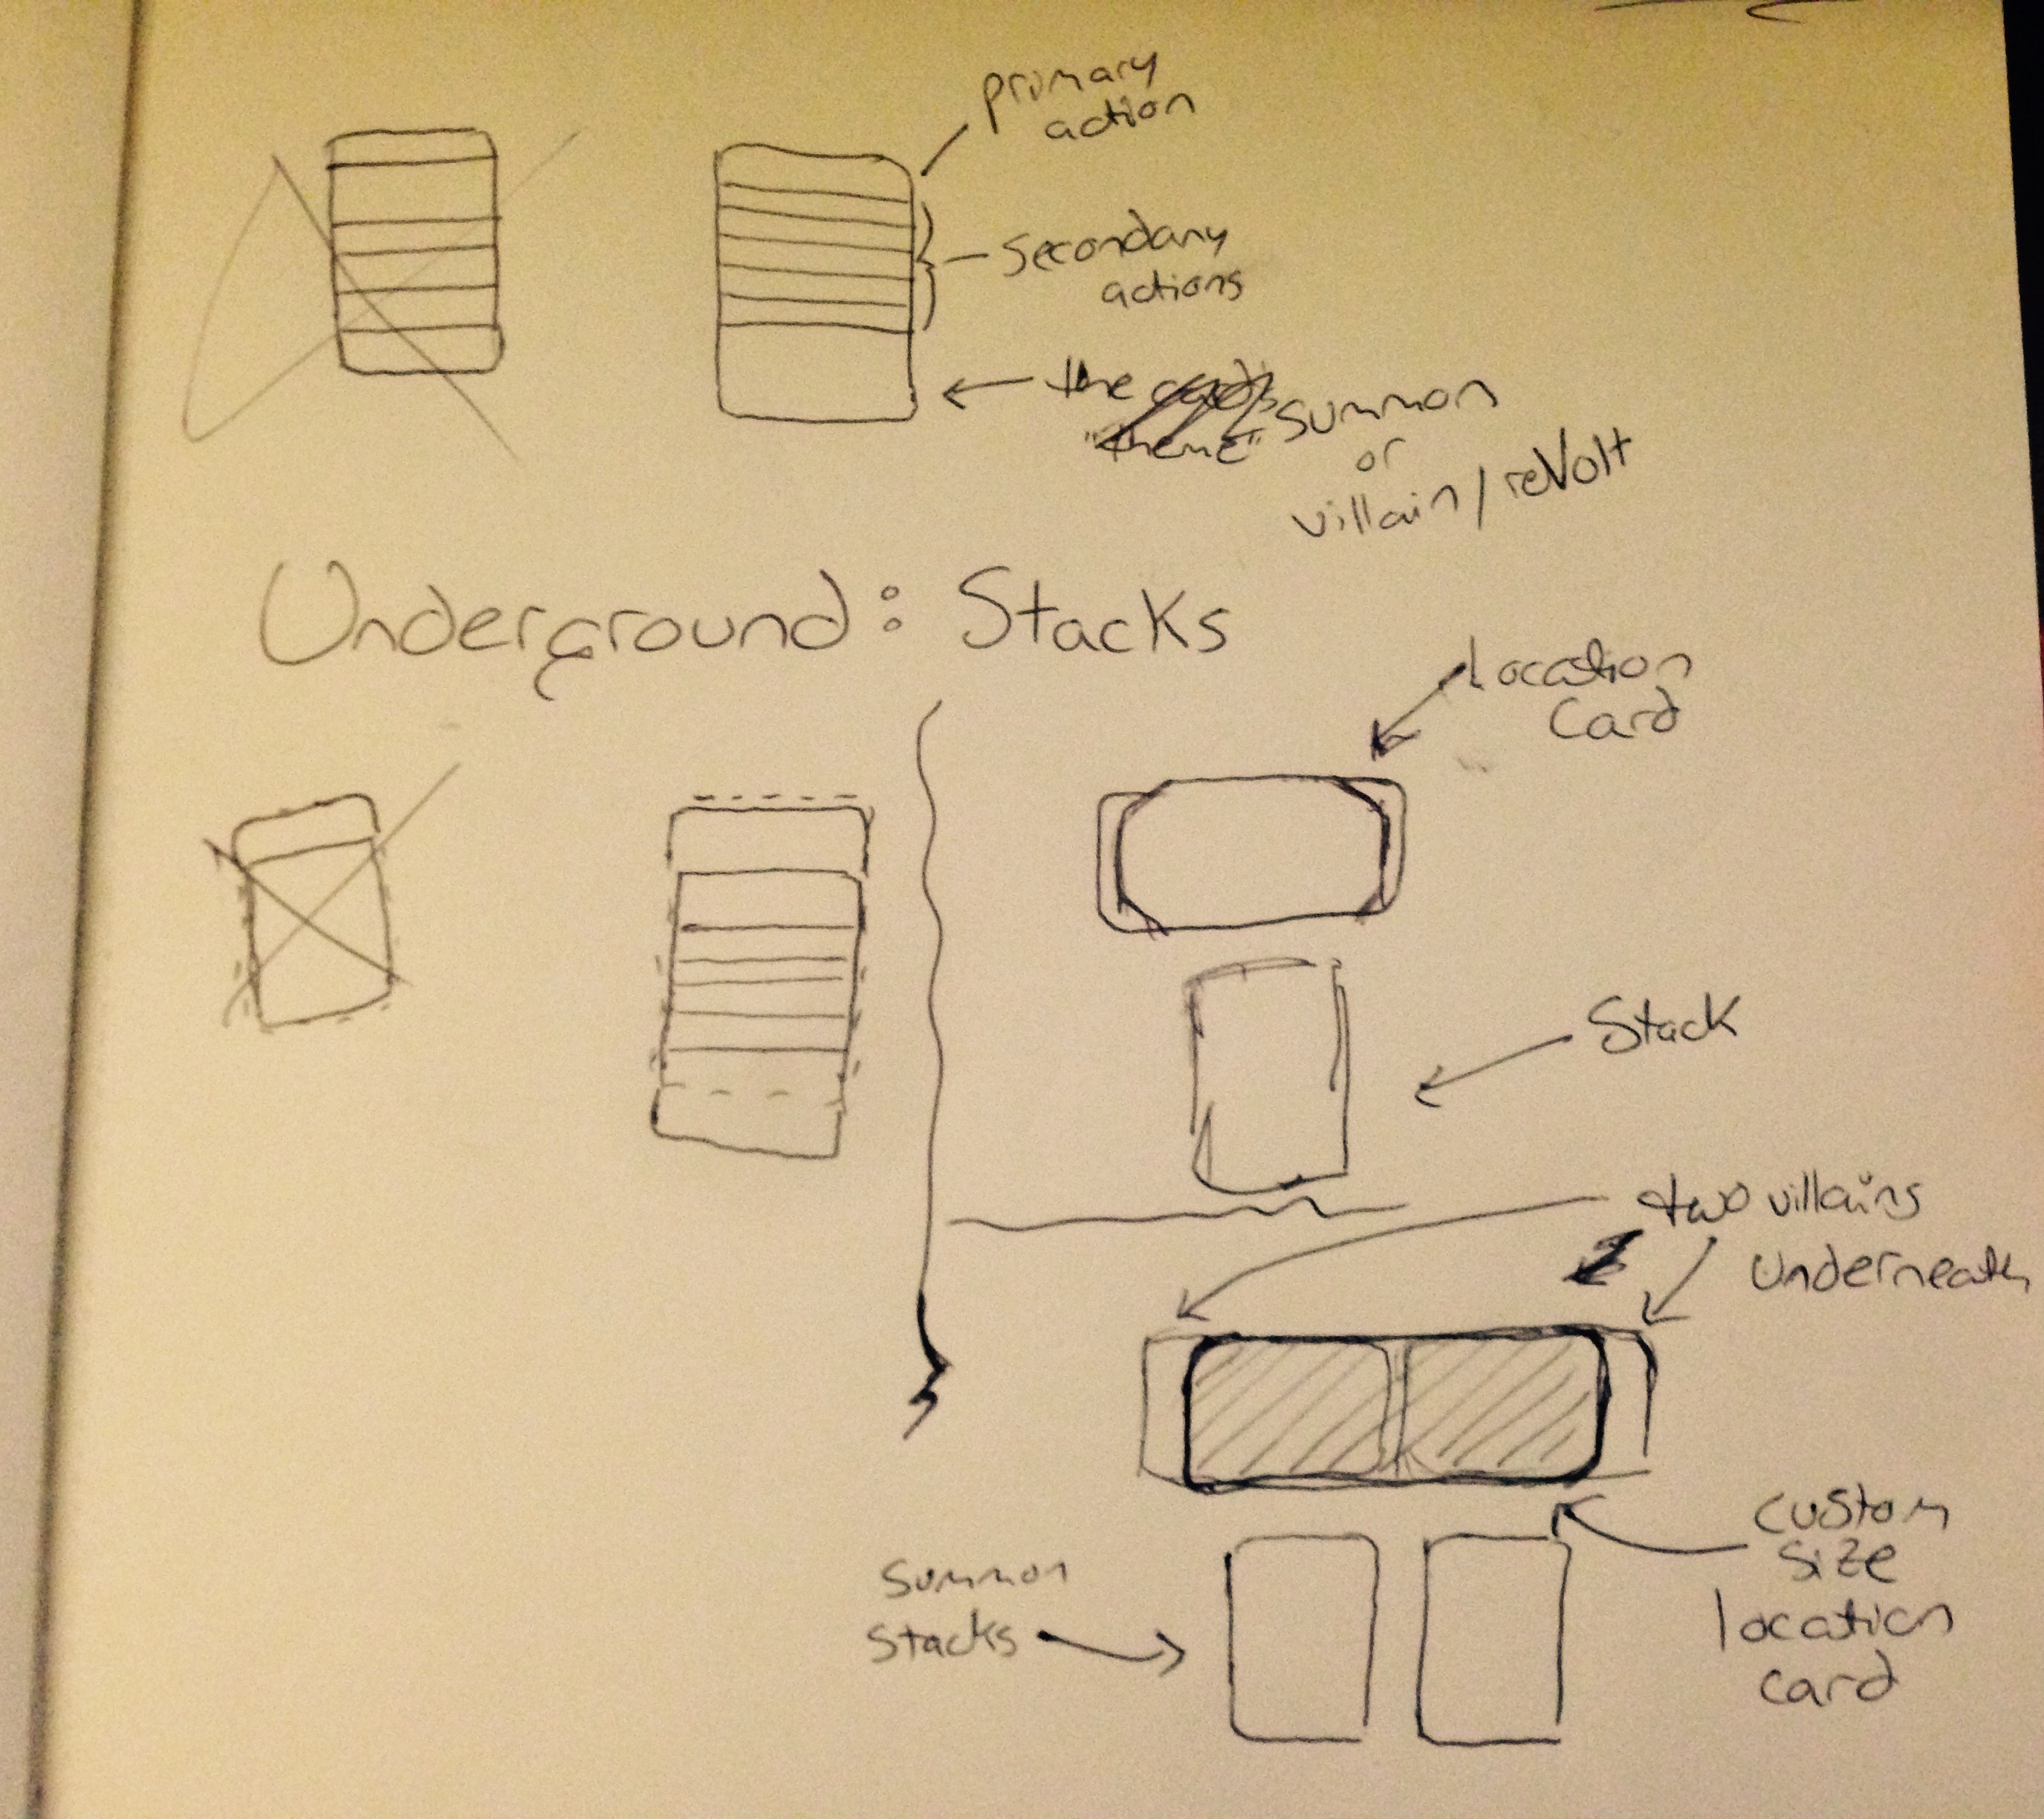 primary
action
Secondary
actions
the card's
"theme" Summon
or
villain/reVolt
Underground: Stacks
Location
Card
Stack
two villains
Underneath
Summon
Stacks
Custom
Size
location
card